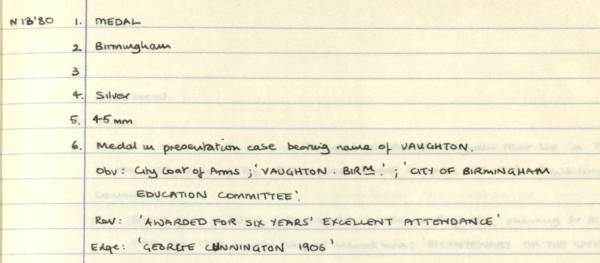 N13'80 1. MEDAL
2. Birmingham
3
4. Silver
5. 45mm
6. Medal in presentation case bearing name of VAUGHTON.
Obv: City Coat of Arms; 'VAUGHTON. BIRM.'; 'CITY OF BIRMINGHAM
EDUCATION COMMITTEE'.
Rev: 'AWARDED FOR SIX YEARS' EXCELLENT ATTENDANCE'
Edge: 'GEORGE CUNNINGTON 1906'